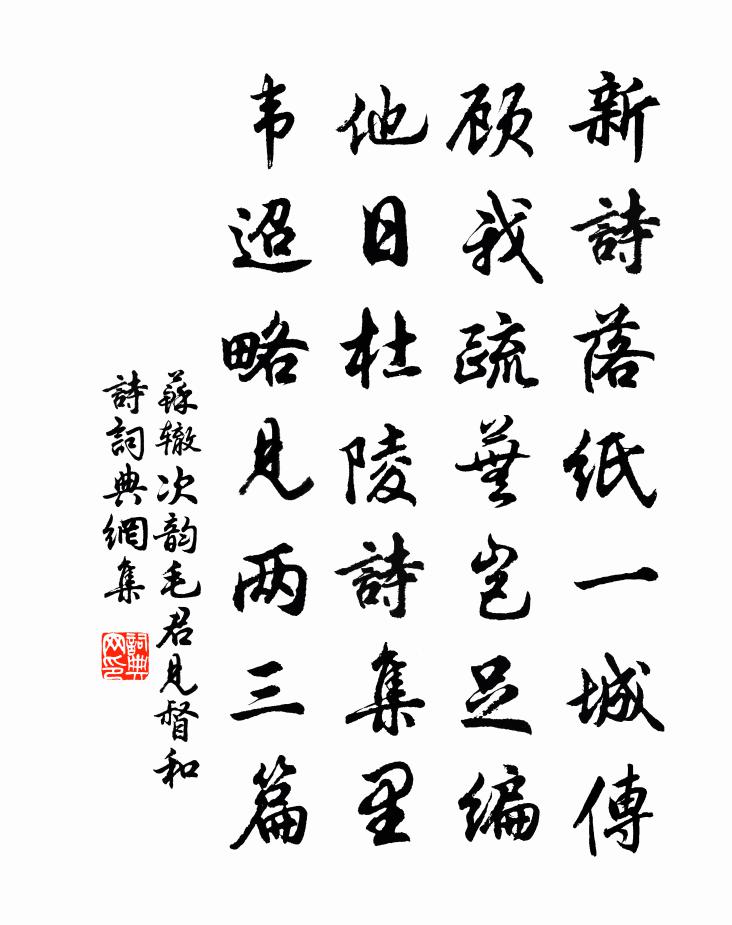 新詩落紙一城傳
顾我疏蕪岂足编
他日杜陵詩集里
韦迢略见两三篇
蘇辙次韵毛君见督和
詩詞典網集
詞典网印